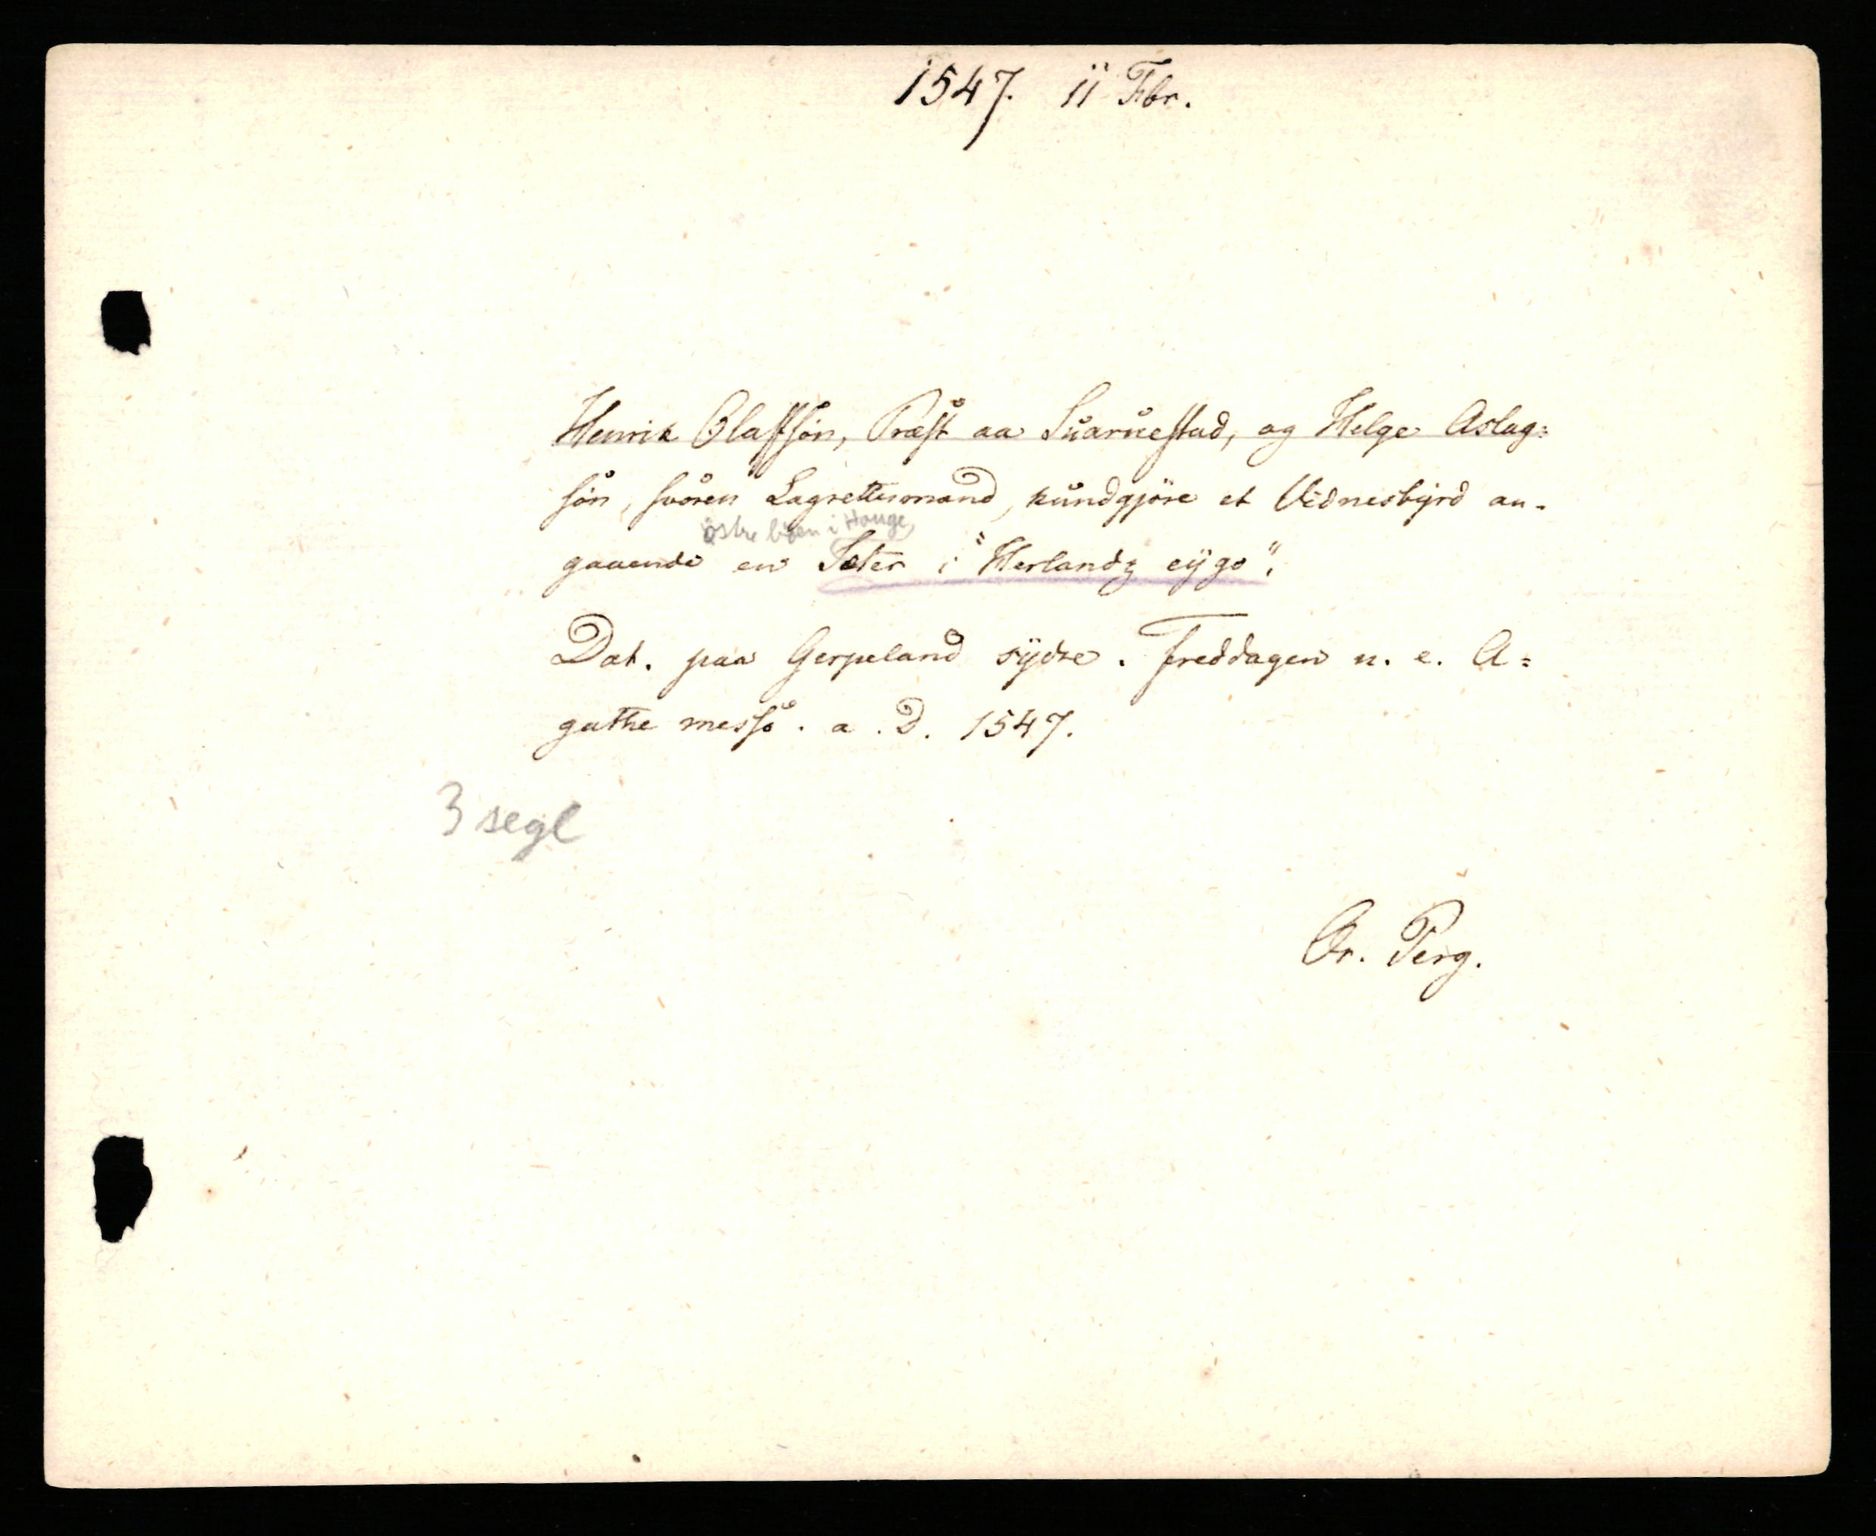 1547. 11 Fbr.
Henrik Olafssön, Præst aa Suarnestad, og Helge Aslag=
søn, svoren Lagrettesmand, kundgjöre et Vidnesbyrd an-
østre lien i Hauge,
gaaende en Sæter i "Herlandz eÿgo".
Dat. paa Gerpeland sÿdre. freddagen n. e. A=
gathe messo. a. D. 1547.
3 segl
Or. Perg.